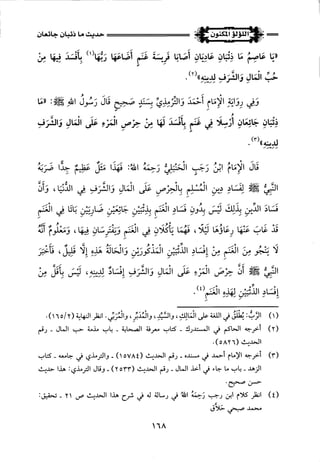 اللؤلؤ المكنون
ما حديث ما ذئبان جائعان
«يا عاصم ما ذئبان عاديان أصابا فريسة غنم أضاعها ربُّها(١) بأفسد لها من
حُب المال والشرف لدينه»(٢).
وفي رواية الإمام أحمد والترمذي بسند صحيح قال رسول الله ﷺ: «ما
ذئبان جائعان أُرسلا في غنم بأفسد لها من حرص المرء على المال والشرف
لدينه»(٣).
قال الإمام ابن رجب الحنبلي رحمه الله: فهذا مثل عظيم جداً ضربه
النبي ﷺ لفساد دين المسلم بالحرص على المال والشرف في الدنيا، وأن
فساد الدين بذلك ليس بدون فساد الغنم بذئبين جائعين ضاريين باتا في الغنم
قد غاب عنها رعاؤها ليلاً، فهما يأكلان في الغنم ويفترسان فيها، ومعلوم أنه
لا ينجو من الغنم من إفساد الذئبين المذكورين والحالة هذه إلا قليل، فأخبر
النبي ﷺ أن حرص المرء على المال والشرف إفساد لدينه، ليس بأقل من
إفساد الذئبين لهذه الغنم(٤).
(١) الرَّبُّ: يُطلق في اللغة على المالك، والسيد، والمدبر، والمربي. انظر النهاية (١٦٥/٢).
(٢) أخرجه الحاكم في المستدرك - كتاب معرفة الصحابة - باب مناقب عاصم بن عدي - رقم
الحديث (٥٨٢٦).
(٣) أخرجه الإمام أحمد في مسنده - رقم الحديث (١٥٧٨٤) - والترمذي في جامعه - كتاب
الزهد - باب ما جاء في أخذ المال - رقم الحديث (٢٥٣٣) - وقال الترمذي: هذا حديث
حسن صحيح.
(٤) انظر كلام ابن رجب رحمه الله في رسالة له في شرح هذا الحديث ص ٢١ - بتحقيق:
محمد صبحي حلاق
١٦٨